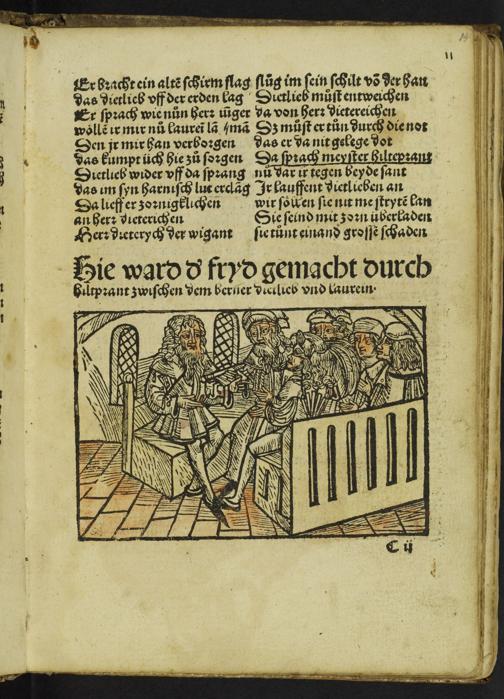 11
Er bracht ein altē schirm slag
das dietlieb vff der erden lag
Er sprach wie nūn herr
wöllē ir mir nū laurei lā
Den ir mir han verborgen
das kumpt üch hie zů sorgen
Dietlieb wider vff da sprang
das im syn harnisch lut erclāg
Da lieff er zornigklichen
an herr dieterichen
Herr dieterych der wigant
slůg im sein schilt vō der han
Dietlieb můst entweichen
da von herr dietereichen
Dz můst er tůn durch die not
das er da nit gelege dot
Da sprach meyster hilteprant
nū dar ir tegen beyde sant
Ir lauffent dietlieben an
wir söllen sie nit me strytē lan
Sie seind mit zorn überladen
sie tůnt einand grossē schaden
Hie ward d' fryd gemacht durch
hiltprant zwischen dem berner dietlieb vnd laurein.
C ij